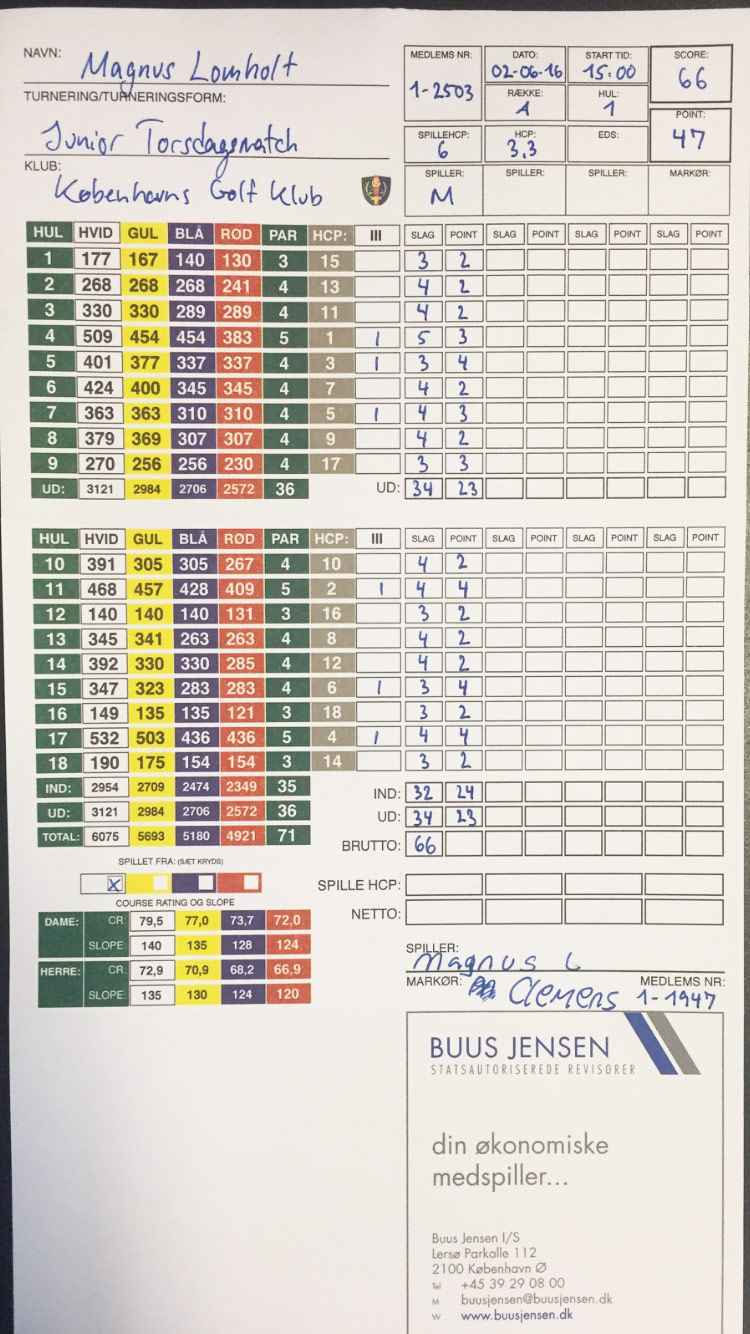 NAVN: Magnus Lomholt
TURNERING/TURNERINGSFORM:
Junior Torsdagsmatch
KLUB:
Københavns Golf Klub
MEDLEMS NR: 1-2503
DATO: 02-06-16
START TID: 15:00
SCORE: 66
RÆKKE: A
HUL: 1
POINT: 47
SPILLEHCP: 6
HCP: 3,3
EDS:
SPILLER: M
SPILLER:
SPILLER:
MARKØR:
HUL HVID GUL BLÅ RØD PAR HCP: III SLAG POINT SLAG POINT SLAG POINT SLAG POINT
1 177 167 140 130 3 15 3 2
2 268 268 268 241 4 13 4 2
3 330 330 289 289 4 11 4 2
4 509 454 454 383 5 1 I 5 3
5 401 377 337 337 4 3 I 3 4
6 424 400 345 345 4 7 4 2
7 363 363 310 310 4 5 I 4 3
8 379 369 307 307 4 9 4 2
9 270 256 256 230 4 17 3 3
UD: 3121 2984 2706 2572 36 UD: 34 23
HUL HVID GUL BLÅ RØD PAR HCP: III SLAG POINT SLAG POINT SLAG POINT SLAG POINT
10 391 305 305 267 4 10 4 2
11 468 457 428 409 5 2 I 4 4
12 140 140 140 131 3 16 3 2
13 345 341 263 263 4 8 4 2
14 392 330 330 285 4 12 4 2
15 347 323 283 283 4 6 I 3 4
16 149 135 135 121 3 18 3 2
17 532 503 436 436 5 4 I 4 4
18 190 175 154 154 3 14 3 2
IND: 2954 2709 2474 2349 35 IND: 32 24
UD: 3121 2984 2706 2572 36 UD: 34 23
TOTAL: 6075 5693 5180 4921 71 BRUTTO: 66
SPILLET FRA: (SÆT KRYDS)
X
SPILLE HCP:
COURSE RATING OG SLOPE
NETTO:
DAME: CR: 79,5 77,0 73,7 72,0
SLOPE: 140 135 128 124
HERRE: CR: 72,9 70,9 68,2 66,9
SLOPE: 135 130 124 120
SPILLER:
Magnus L
MARKØR: Clemens
MEDLEMS NR:
1-1947
BUUS JENSEN
STATSAUTORISEREDE REVISORER
din økonomiske
medspiller...
Buus Jensen I/S
Lersø Parkalle 112
2100 København Ø
Tel +45 39 29 08 00
M buusjensen@buusjensen.dk
W www.buusjensen.dk